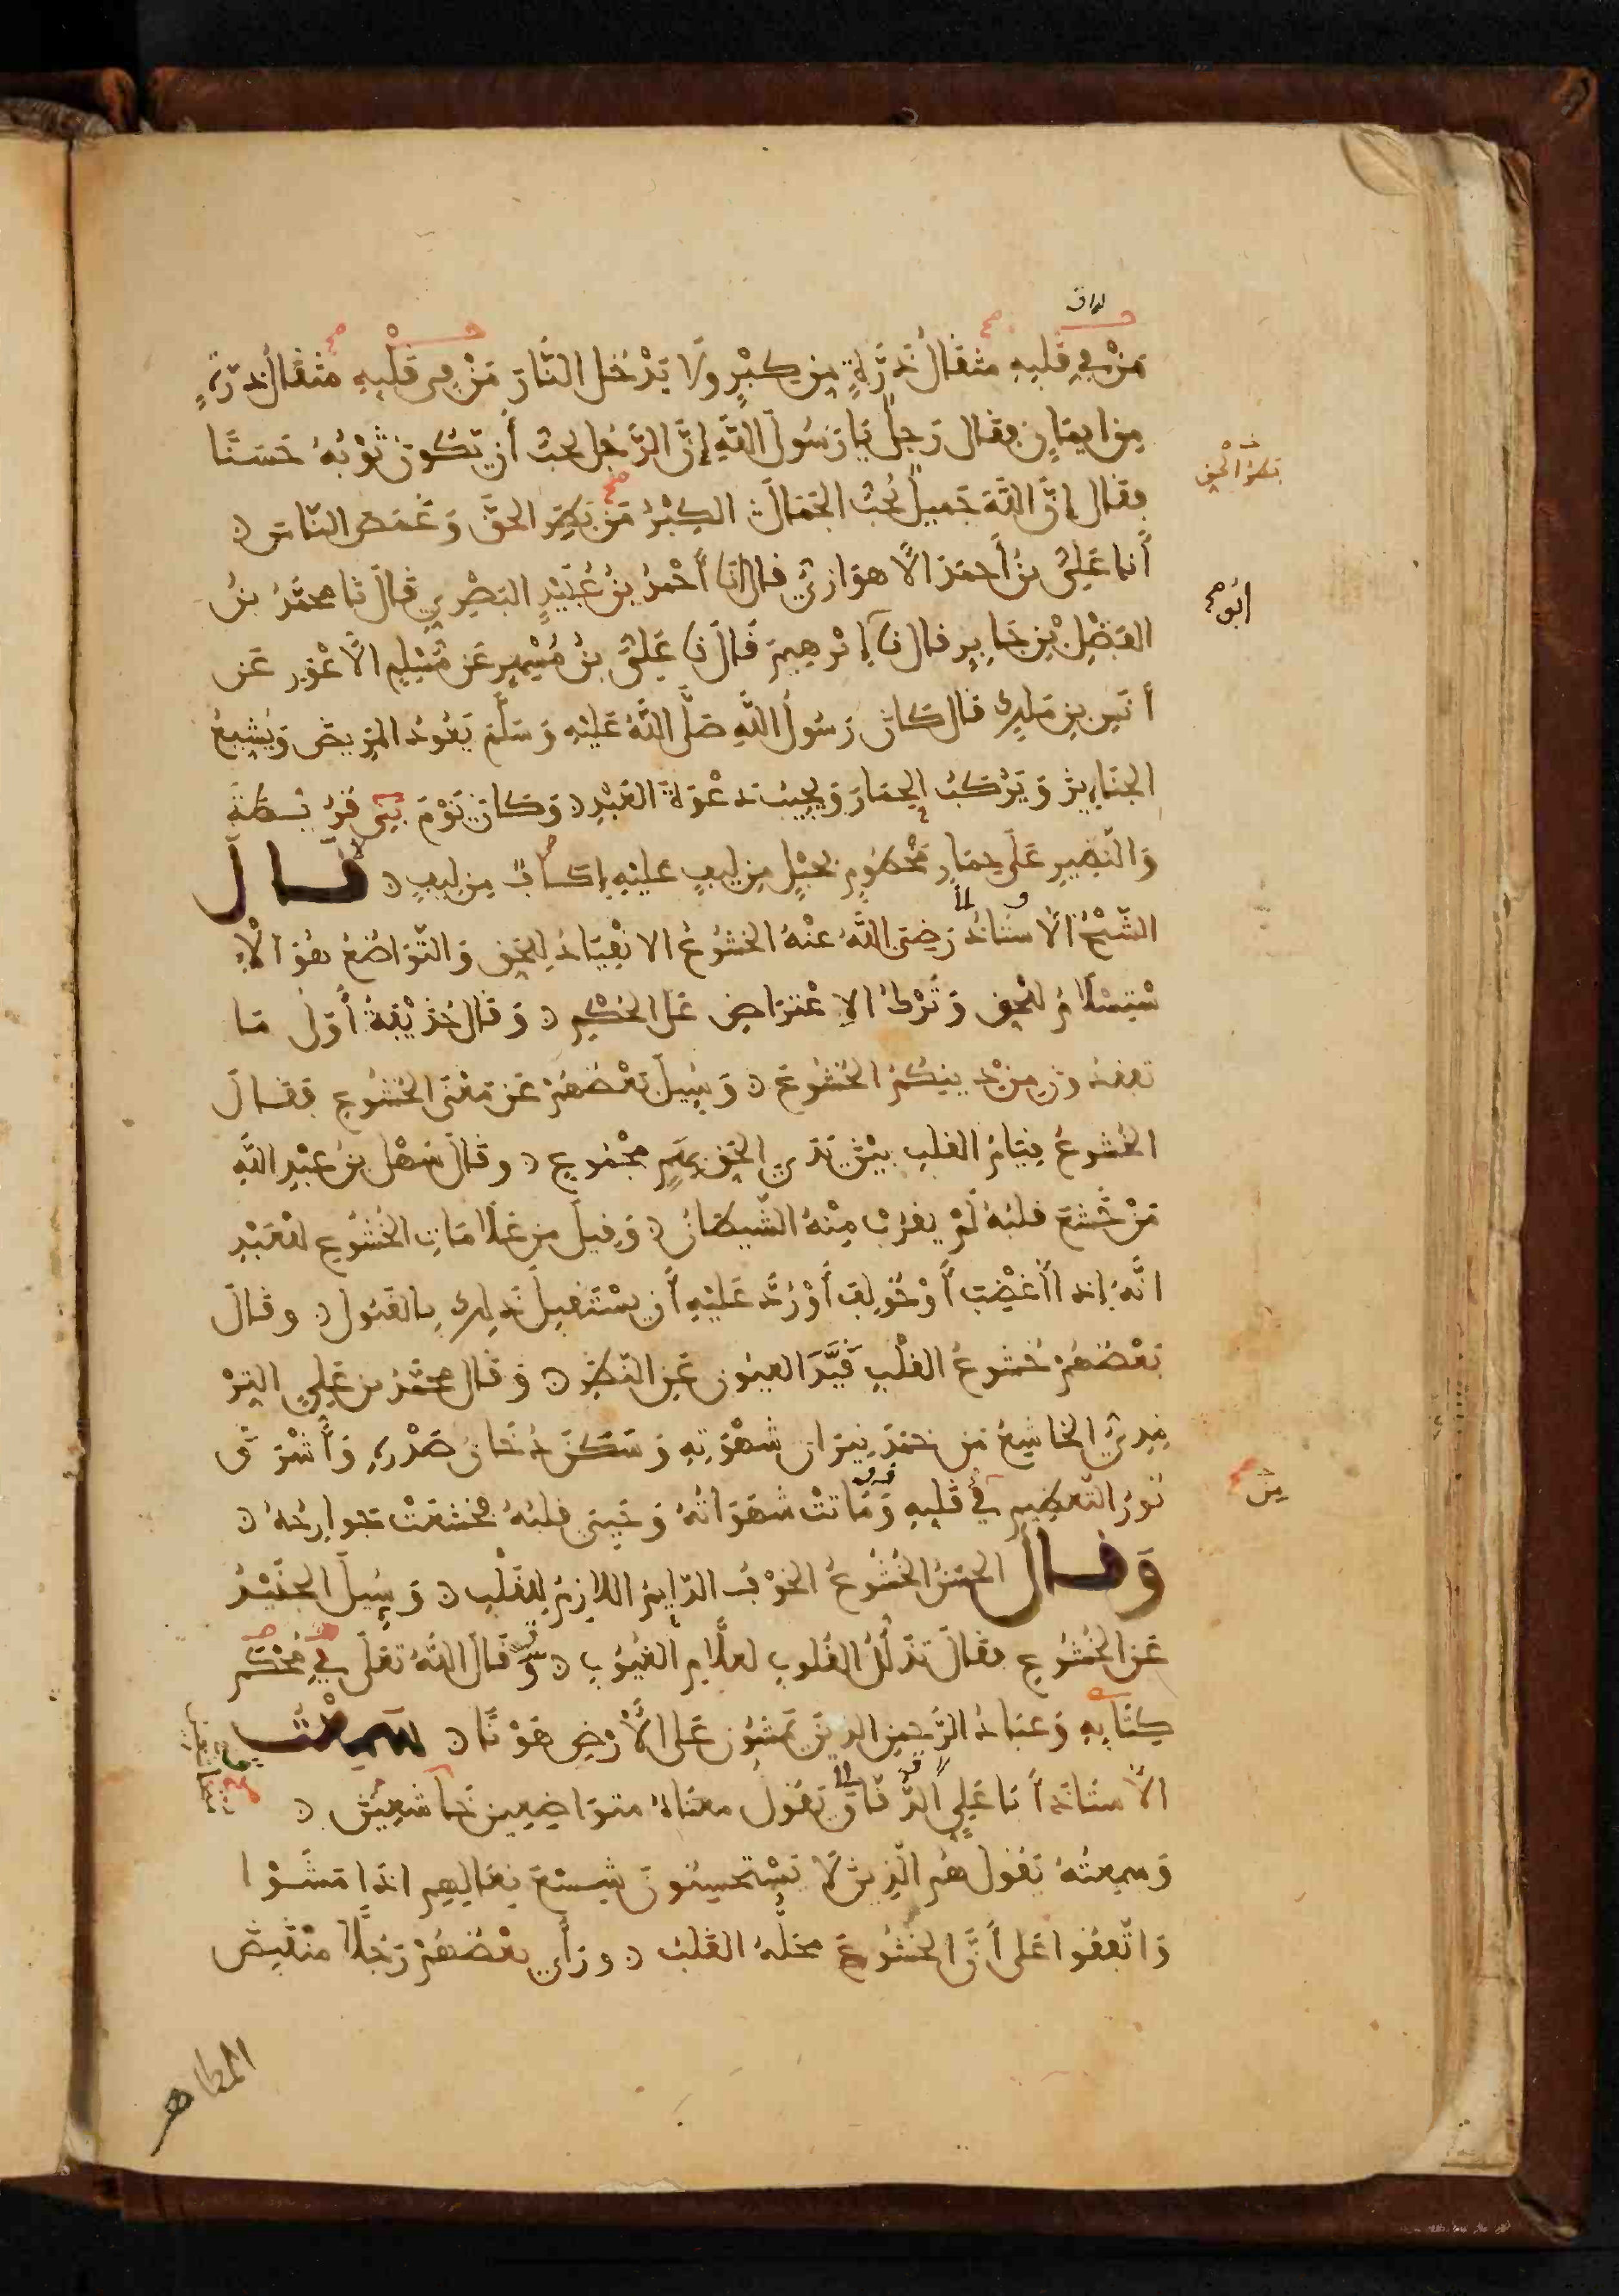 مَنْ فِي قَلْبِهِ مثقَالُ ذَرَّةٍ مِن كِبْرٍ ولَا يَدْخل النَّارَ مَنْ في قَلْبِهِ مثقَالُ ذرّةٍ
مِن ايمانٍ فقال رَجلٌ يَا رَسُولَ اللَّهِ إنَّ الرَّجُل يحبّ أن يَكُونَ ثَوْبُهُ حَسَنًا
فقال إنَّ اللَّهَ جَمِيلٌ يُحبّ الجَمَالَ الكِبْرُ مَن بَطِرَ الحَقَّ وَغَمَصَ النّاسَ
أنا عَلِيُّ بنُ أحمَدَ الأهوَازيّ قال أنا أحْمَدُ بنُ عُبَيْدٍ البَصْرِي قَالَ نَا محمَّدُ بنُ
الفَضْلِ بْنِ جَابِرٍ قال نا إبْرهِيمُ قَالَ نا عَلِيُّ بنُ مُسْهِرٍ عَن مُسْلِمٍ الأعْوَرِ عَن
أنَسِ بنِ مَلِكٍ قال كَانَ رَسُولُ اللَّهِ صَلَّى اللَّهُ عَلَيْهِ وَسَلَّمَ يَعُودُ المَرِيضَ وَيُشَيِّعُ
الجنَايِزَ وَيَرْكَبُ الحِمَارَ وَيُجِيبُ دَعْوَةَ العَبْدِ وَكَانَ يَوْمَ بَنِي قُرَيْظَةَ
وَالنَّضِيرِ عَلَى حِمَارٍ مَخْطُومٍ بحَبْلٍ مِن لِيفٍ عَلَيْهِ إكَافٌ مِن لِيفٍ قال
الشّيْخُ الأستَاذُ رَضِيَ اللَّهُ عَنْهُ الخُشُوعُ الانْقِيَادُ لِلْحَقِّ وَالتَّوَاضُعُ هُوَ الْاِ
سْتِسْلَامُ للْحَقِّ وَتَرْكُ الاِعْتِرَاضِ عَلَى الحُكْمِ وَقَالَ حُذَيْفَةُ أوّلُ مَا
تفقدُونَ مِنْ دِينِكُمُ الخُشُوعَ وَسُيِلَ بَعْضُهُمْ عَن مَعْنَى الخُشُوعِ فَقَالَ
الخُشُوعُ قِيَامُ القَلبِ بَيْنَ يَدَيِ الحَقِّ بِهَمٍّ مَجْمُوعٍ وقَالَ سَهْلُ بنُ عَبْدِ اللَّهِ
مَنْ خَشَعَ قلبُهُ لَمْ يقرُبْ مِنْهُ الشَّيطَانُ وَقِيلَ مِن عَلَامَاتِ الخُشُوعِ لِلْعَبْدِ
انَّهُ إذا أُغْضِبَ أوْ خُولِفَ أوْ رُدَّ عَلَيْهِ أن يسْتَقبِلَ ذَلِكَ بِالقَبُولِ وقَالَ
بَعْضُهُمْ خُشُوعُ القَلْبِ قَيْدُ العيُونِ عَنِ النَّظَرِ وَقَالَ محمَّدُ بن عَلِيٍّ التِّرْ
مِذِيّ الخَاشِعُ مَن خمَدَت نِيرَانُ شَهْوَتِهِ وَسَكَنَ دُخَانُ صَدْرِهِ وَأَشْرَقَ
نُورُ التَّعظِيمِ فِي قَلْبِهِ وَمَاتَتْ شَهَوَاتُهُ وَحَيِيَ قلبُهُ فخشَعَتْ جَوَارِحُهُ
وَقال الحَسَنُ الخُشُوعُ الخَوْفُ الدَّايِمُ اللازِمُ لِلقَلْبِ وَسُيِلَ الجُنَيْدُ
عَنِ الخُشُوعِ فقَالَ تَذَلُّلُ القُلوبِ لِعلَّامِ الغُيُوبِ وَقَالَ اللَّهُ تَعَلَى فِي مُحْكَمِ
كِتَابِهِ وَعِبَادُ الرَّحْمَنِ الذِينَ يَمْشُونَ عَلَى الأرْضِ هَوْنًا سَمِعْتُ
الأستَاذَ أبَا عَلِيٍّ الدَّقَّاقَ يَقُولُ مَعنَاهُ متوَاضِعِينَ خَاشِعِينَ
وَسمِعتُهُ يَقُولُ هُمُ الّذِينَ لَا يَسْتَحسِنُونَ شِسْعَ نِعَالِهِمِ اذَا مَشَوْا
وَاتَّفَقُوا عَلَى أنَّ الخُشُوعَ مَحَلُّهُ القَلْبُ ورَأَى بَعْضُهُمْ رَجُلًا منْقَبِضَ
الظاهر